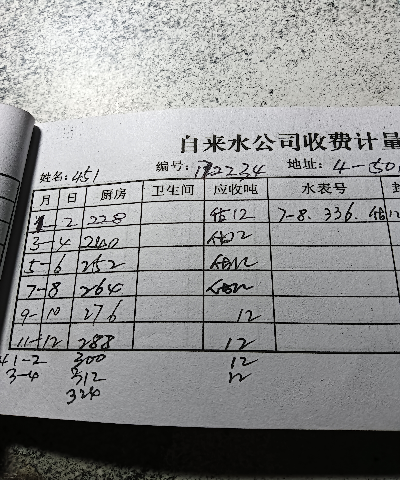 自来水公司收费计量
姓名: 451 编号: 122234 地址: 4-50
月 日 厨房 卫生间 应收吨 水表号
1-2 228 估12 7-8. 336. 估12
3-4 240 估12
5-6 252 估12
7-8 264 估12
9-10 276 12
11-12 288 12
1-2 300 12
3-4 312 12
324